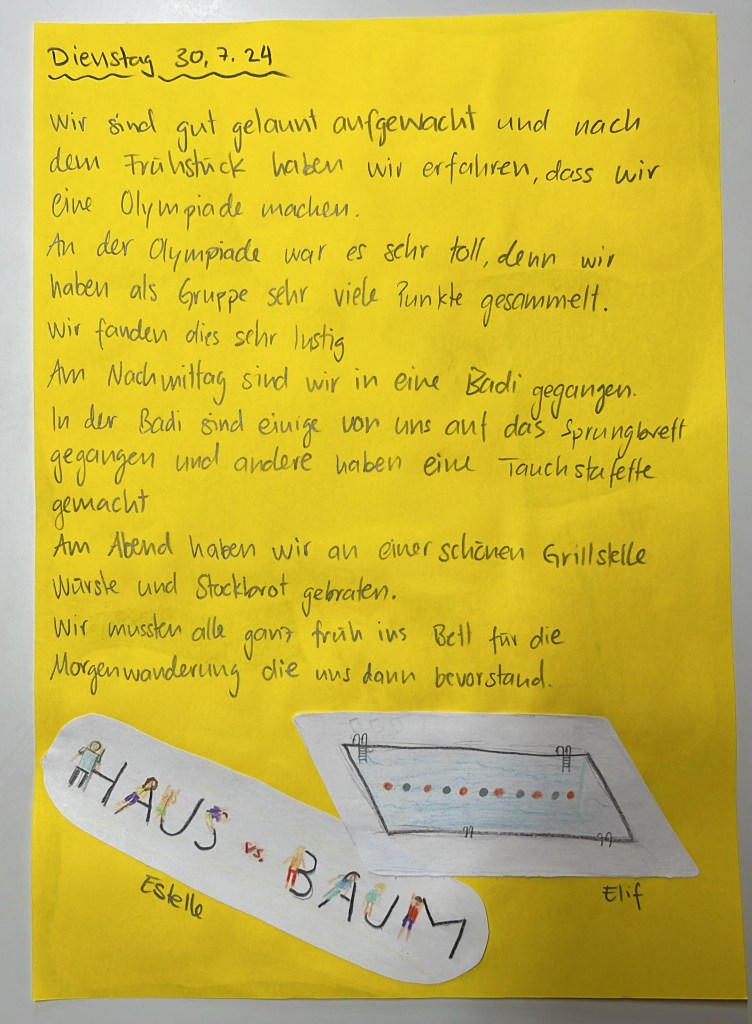 Dienstag 30.7.24
Wir sind gut gelaunt aufgewacht und nach
dem Frühstück haben wir erfahren, dass wir
eine Olympiade machen.
An der Olympiade war es sehr toll, denn wir
haben als Gruppe sehr viele Punkte gesammelt.
Wir fanden dies sehr lustig
Am Nachmittag sind wir in eine Badi gegangen.
In der Badi sind einige von uns auf das Sprungbrett
gegangen und andere haben eine Tauchstafette
gemacht
Am Abend haben wir an einer schönen Grillstelle
Würste und Stockbrot gebraten.
Wir mussten alle ganz früh ins Bett für die
Morgenwanderung die uns dann bevorstand.
HAUS vs. BAUM
Estelle
Elif